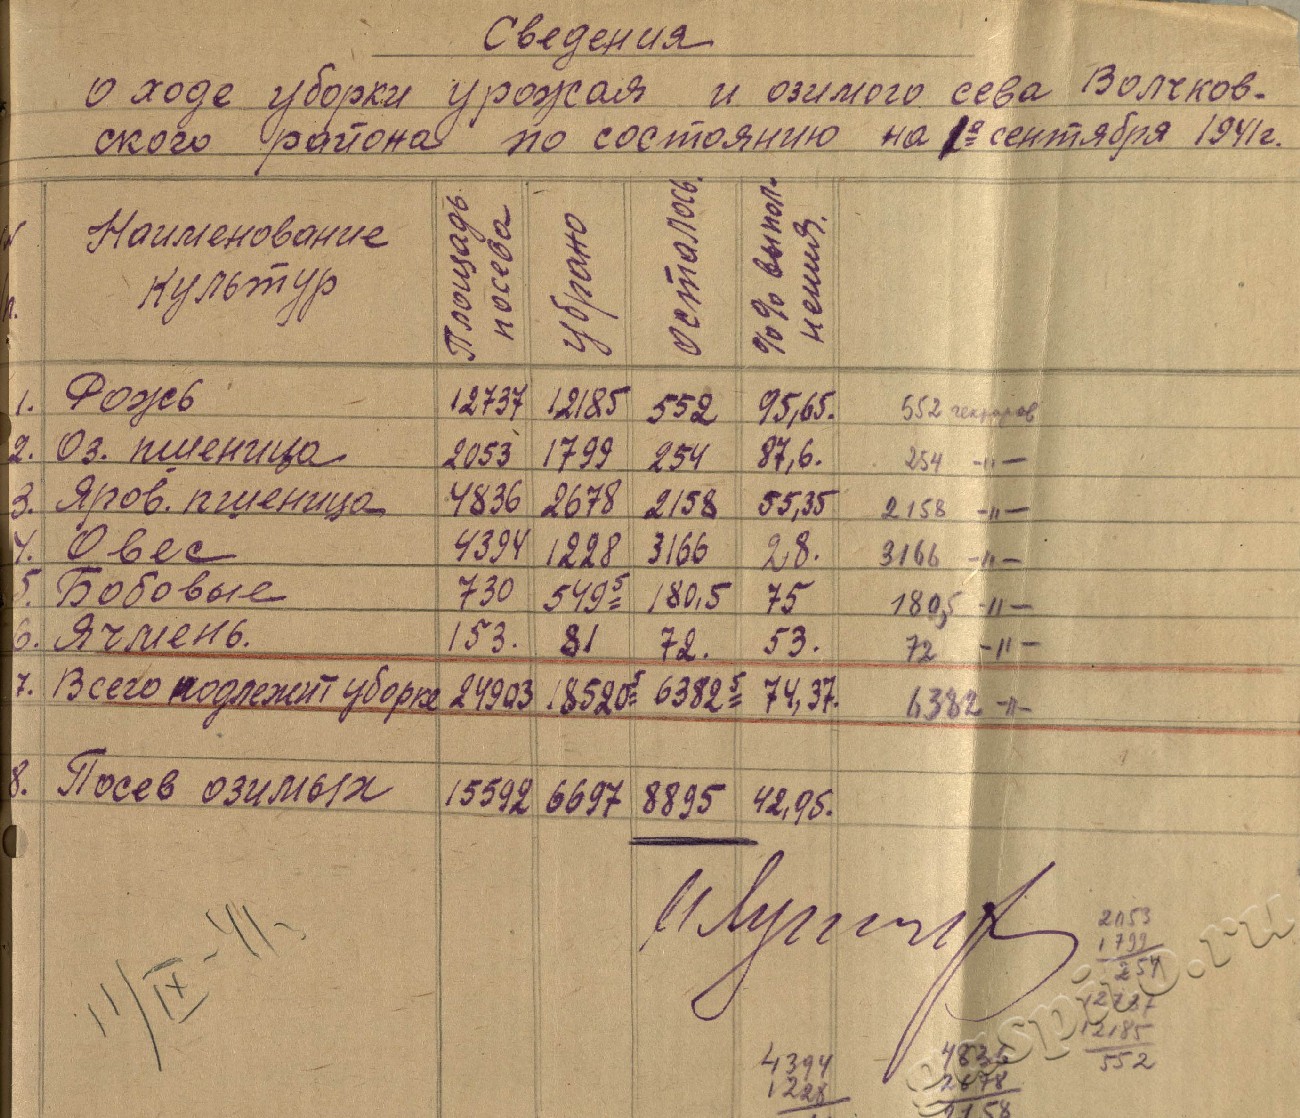 Сведения
о ходе уборки урожая и озимого сева Волчков-
ского района по состоянию на 1º сентября 1941г.
Наименование культур Площадь посева Убрано Осталось %% выпол-нения.
1. Рожь 12737 12185 552 95,65. 552 гектаров
2. Оз. пшеница 2053 1799 254 87,6. 254 -"-
3. Яров. пшеница 4836 2678 2158 55,35 2158 -"-
4. Овес 4394 1228 3166 28. 3166 -"-
5. Бобовые 730 549⁵ 180,5 75 180,5 -"-
6. Ячмень. 153. 81 72. 53. 72 -"-
7. Всего подлежит уборке 24903 18520⁵ 6382⁵ 74,37. 6382 -"-
8. Посев озимых 15592 6697 8895 42,95.
11/IX-41г.
2053
1799
254
12737
12185
552
4394
1228
4836
2678
2158
gaspito.ru